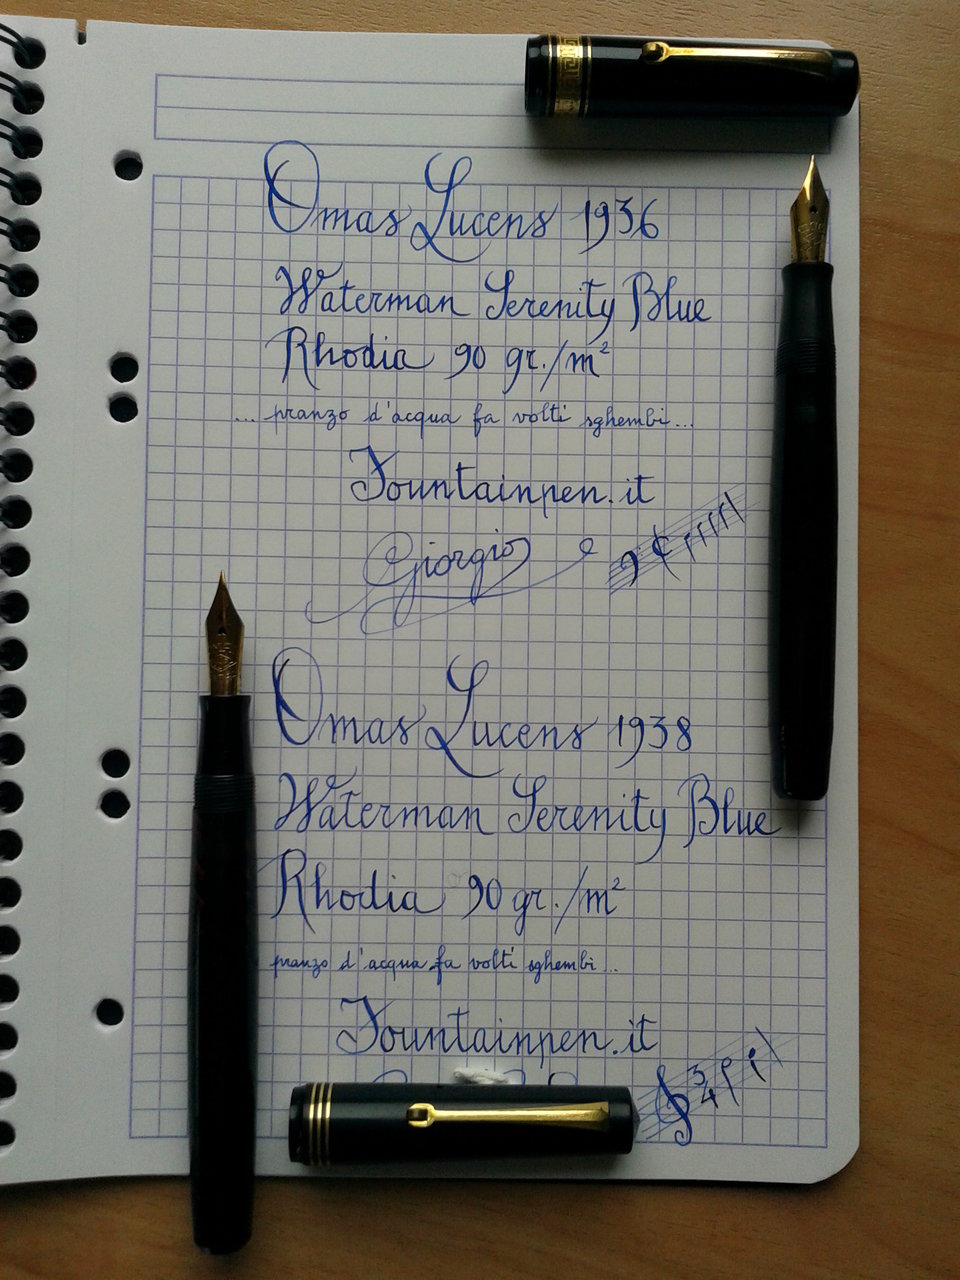 Omas Lucens 1936
Waterman Serenity Blue
Rhodia 90 gr./m²
... pranzo d'acqua fa volti sghembi...
Fountainpen.it
Giorgio
Omas Lucens 1938
Waterman Serenity Blue
Rhodia 90 gr./m²
pranzo d'acqua fa volti sghembi...
Fountainpen.it
3
4